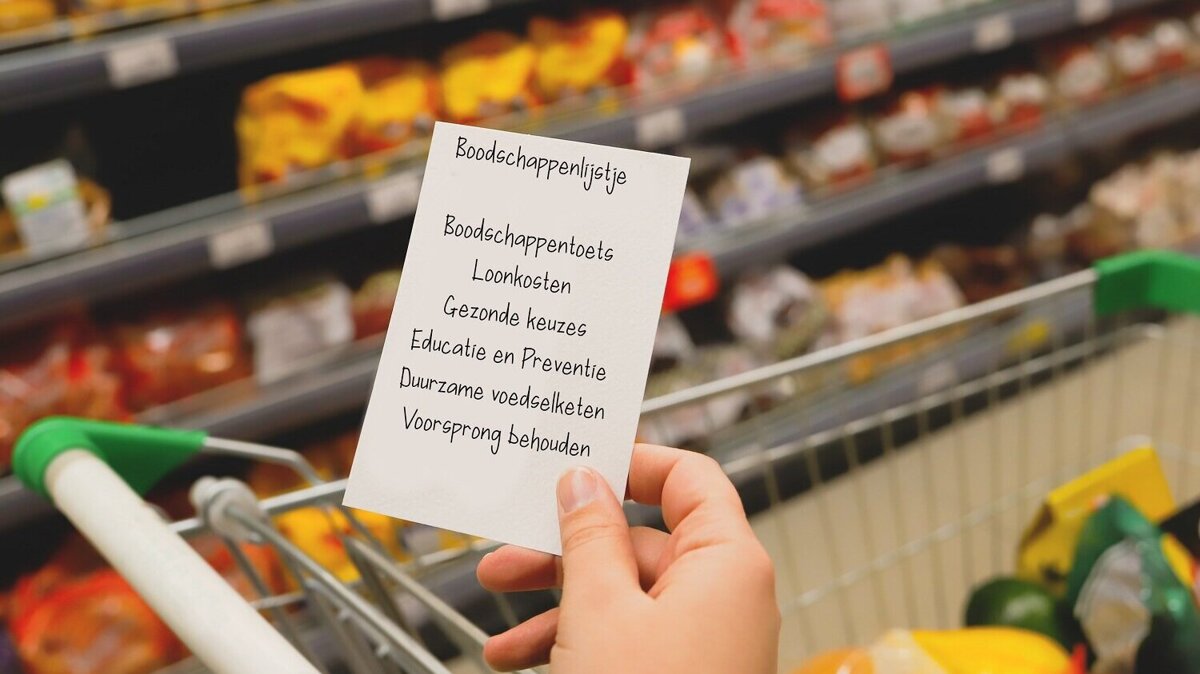 Boodschappenlijstje
Boodschappentoets
Loonkosten
Gezonde keuzes
Educatie en Preventie
Duurzame voedselketen
Voorsprong behouden